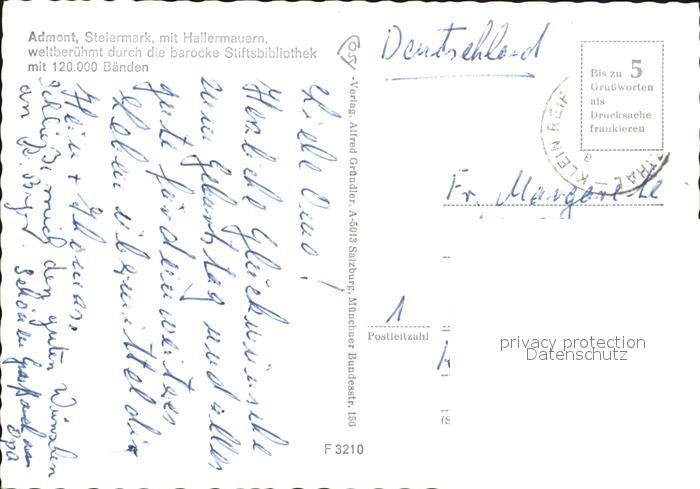 Admont, Steiermark, mit Hallermauern,
weltberühmt durch die barocke Stiftsbibliothek
mit 120.000 Bänden
Liebe Oma!
Herzliche Glückwünsche
zum Geburtstag und alles
gute für dein weiteres
Leben übermittel dir
Hein + Thomas.
schließe mich den guten Wünschen
an
Schönen Gruß
Opa
-Verlag, Alfred Gründler, A-5013 Salzburg, Münchner Bundesstr. 156
F 3210
Deutschland
Bis zu 5
Grußworten
als
Drucksache
frankieren
THAL - KLEIN REIF
a
Fr. Margarete
1
Postleitzahl
privacy protection
Datenschutz